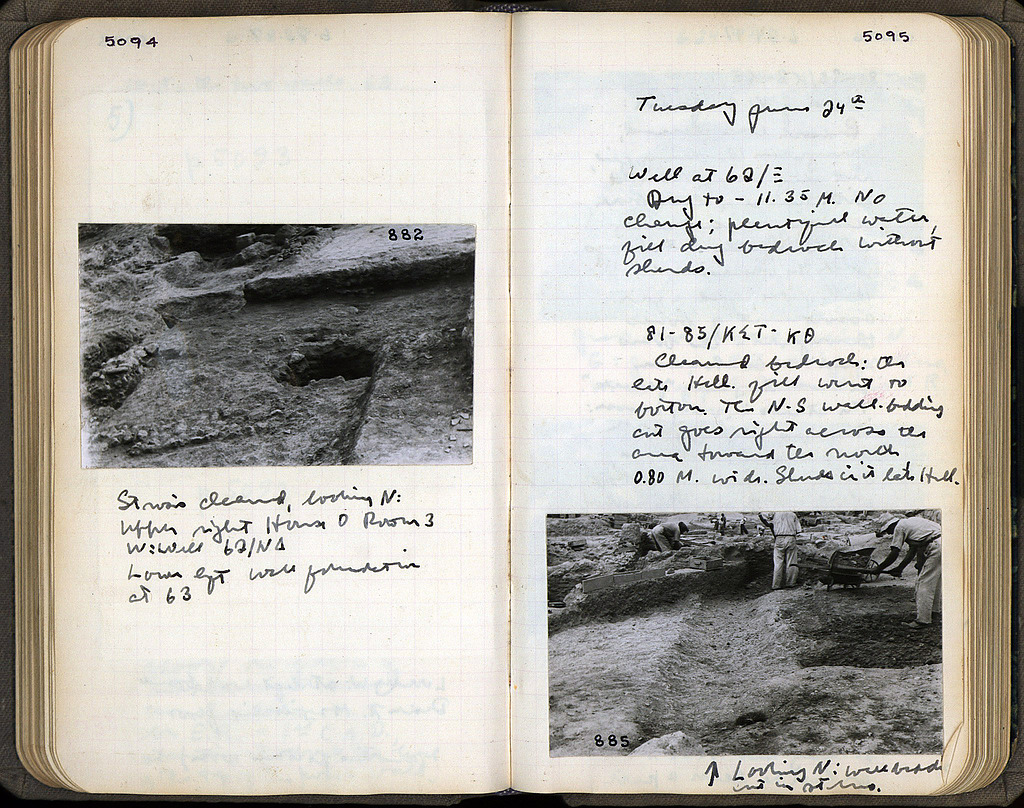 5094
882
Stereo's cleaned, looking N:
Upper right House O Room 3
W: Well 62/ΝΔ
Lower left wall foundation
at 63
5095
Tuesday June 24
Well at 62/Ξ
Dug to - 11.35 M. No
change; plentiful water,
fill dug bedrock without
sherds.
81-85/ΚΣΤ - ΚΘ
Cleaned bedrock: the
late Hell. fill went to
bottom. The N-S wall-bedding
cut goes right across the
area toward the north
0.80 M. wide. Sherds in it late Hell.
885
↑ Looking N: wall bedd
cut in